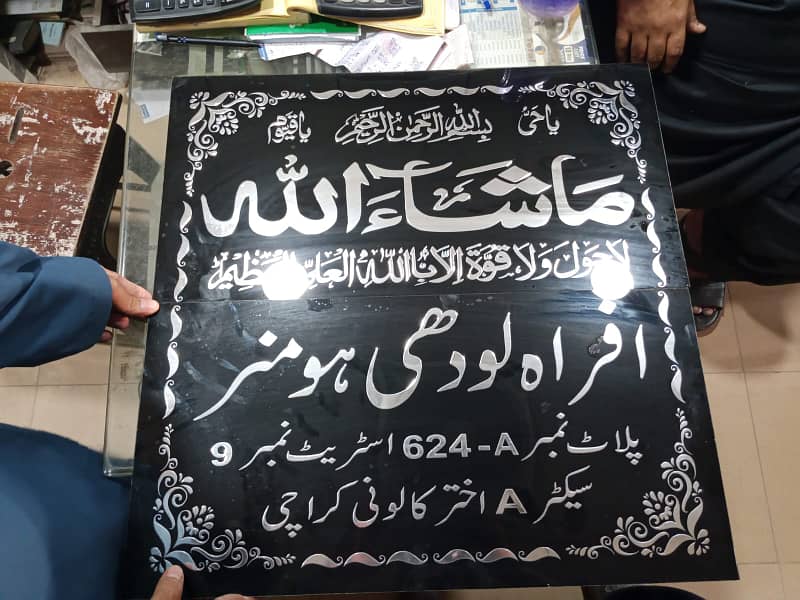 یا حیُّ بِسْمِ اللہِ الرَّحْمٰنِ الرَّحِیْمِ یا قیوم
مَاشَاءَ اللہ
لَا حَوْلَ وَلَا قُوَّةَ اِلَّا بِاللہِ الْعَلِیِّ الْعَظِیْمِ
افراہ لودھی ہومنر
پلاٹ نمبر 624-A اسٹریٹ نمبر 9
سیکٹر A اختر کالونی کراچی